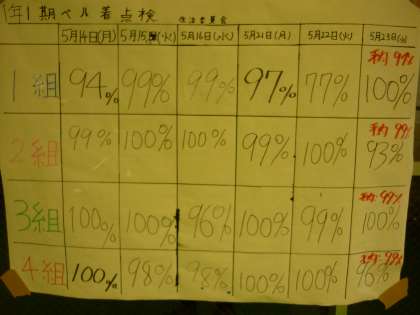 1年1期ベル着点検 生活委員会
5月14日(月) 5月15日(火) 5月16日(水) 5月21日(月) 5月22日(火) 5月23日(水)
1組 94% 99% 99% 97% 77% 100%
平均 94%
2組 99% 100% 100% 99% 100% 93%
平均 99%
3組 100% 100% 96% 100% 99% 100%
平均 99%
4組 100% 98% 98% 100% 100% 96%
平均 99%